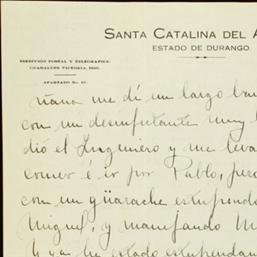 SANTA CATALINA DEL A
ESTADO DE DURANGO.
DIRECCION POSTAL Y TELEGRAFICA:
GUADALUPE VICTORIA, DGO.
APARTADO No.
ñana me dí un largo ba
con un desinfectante muy
dió el Ingeniero y me leva
comer é ir por Pablo, pero
con un güarache estupendo
Miguel, y manifando
ha estado estupendam